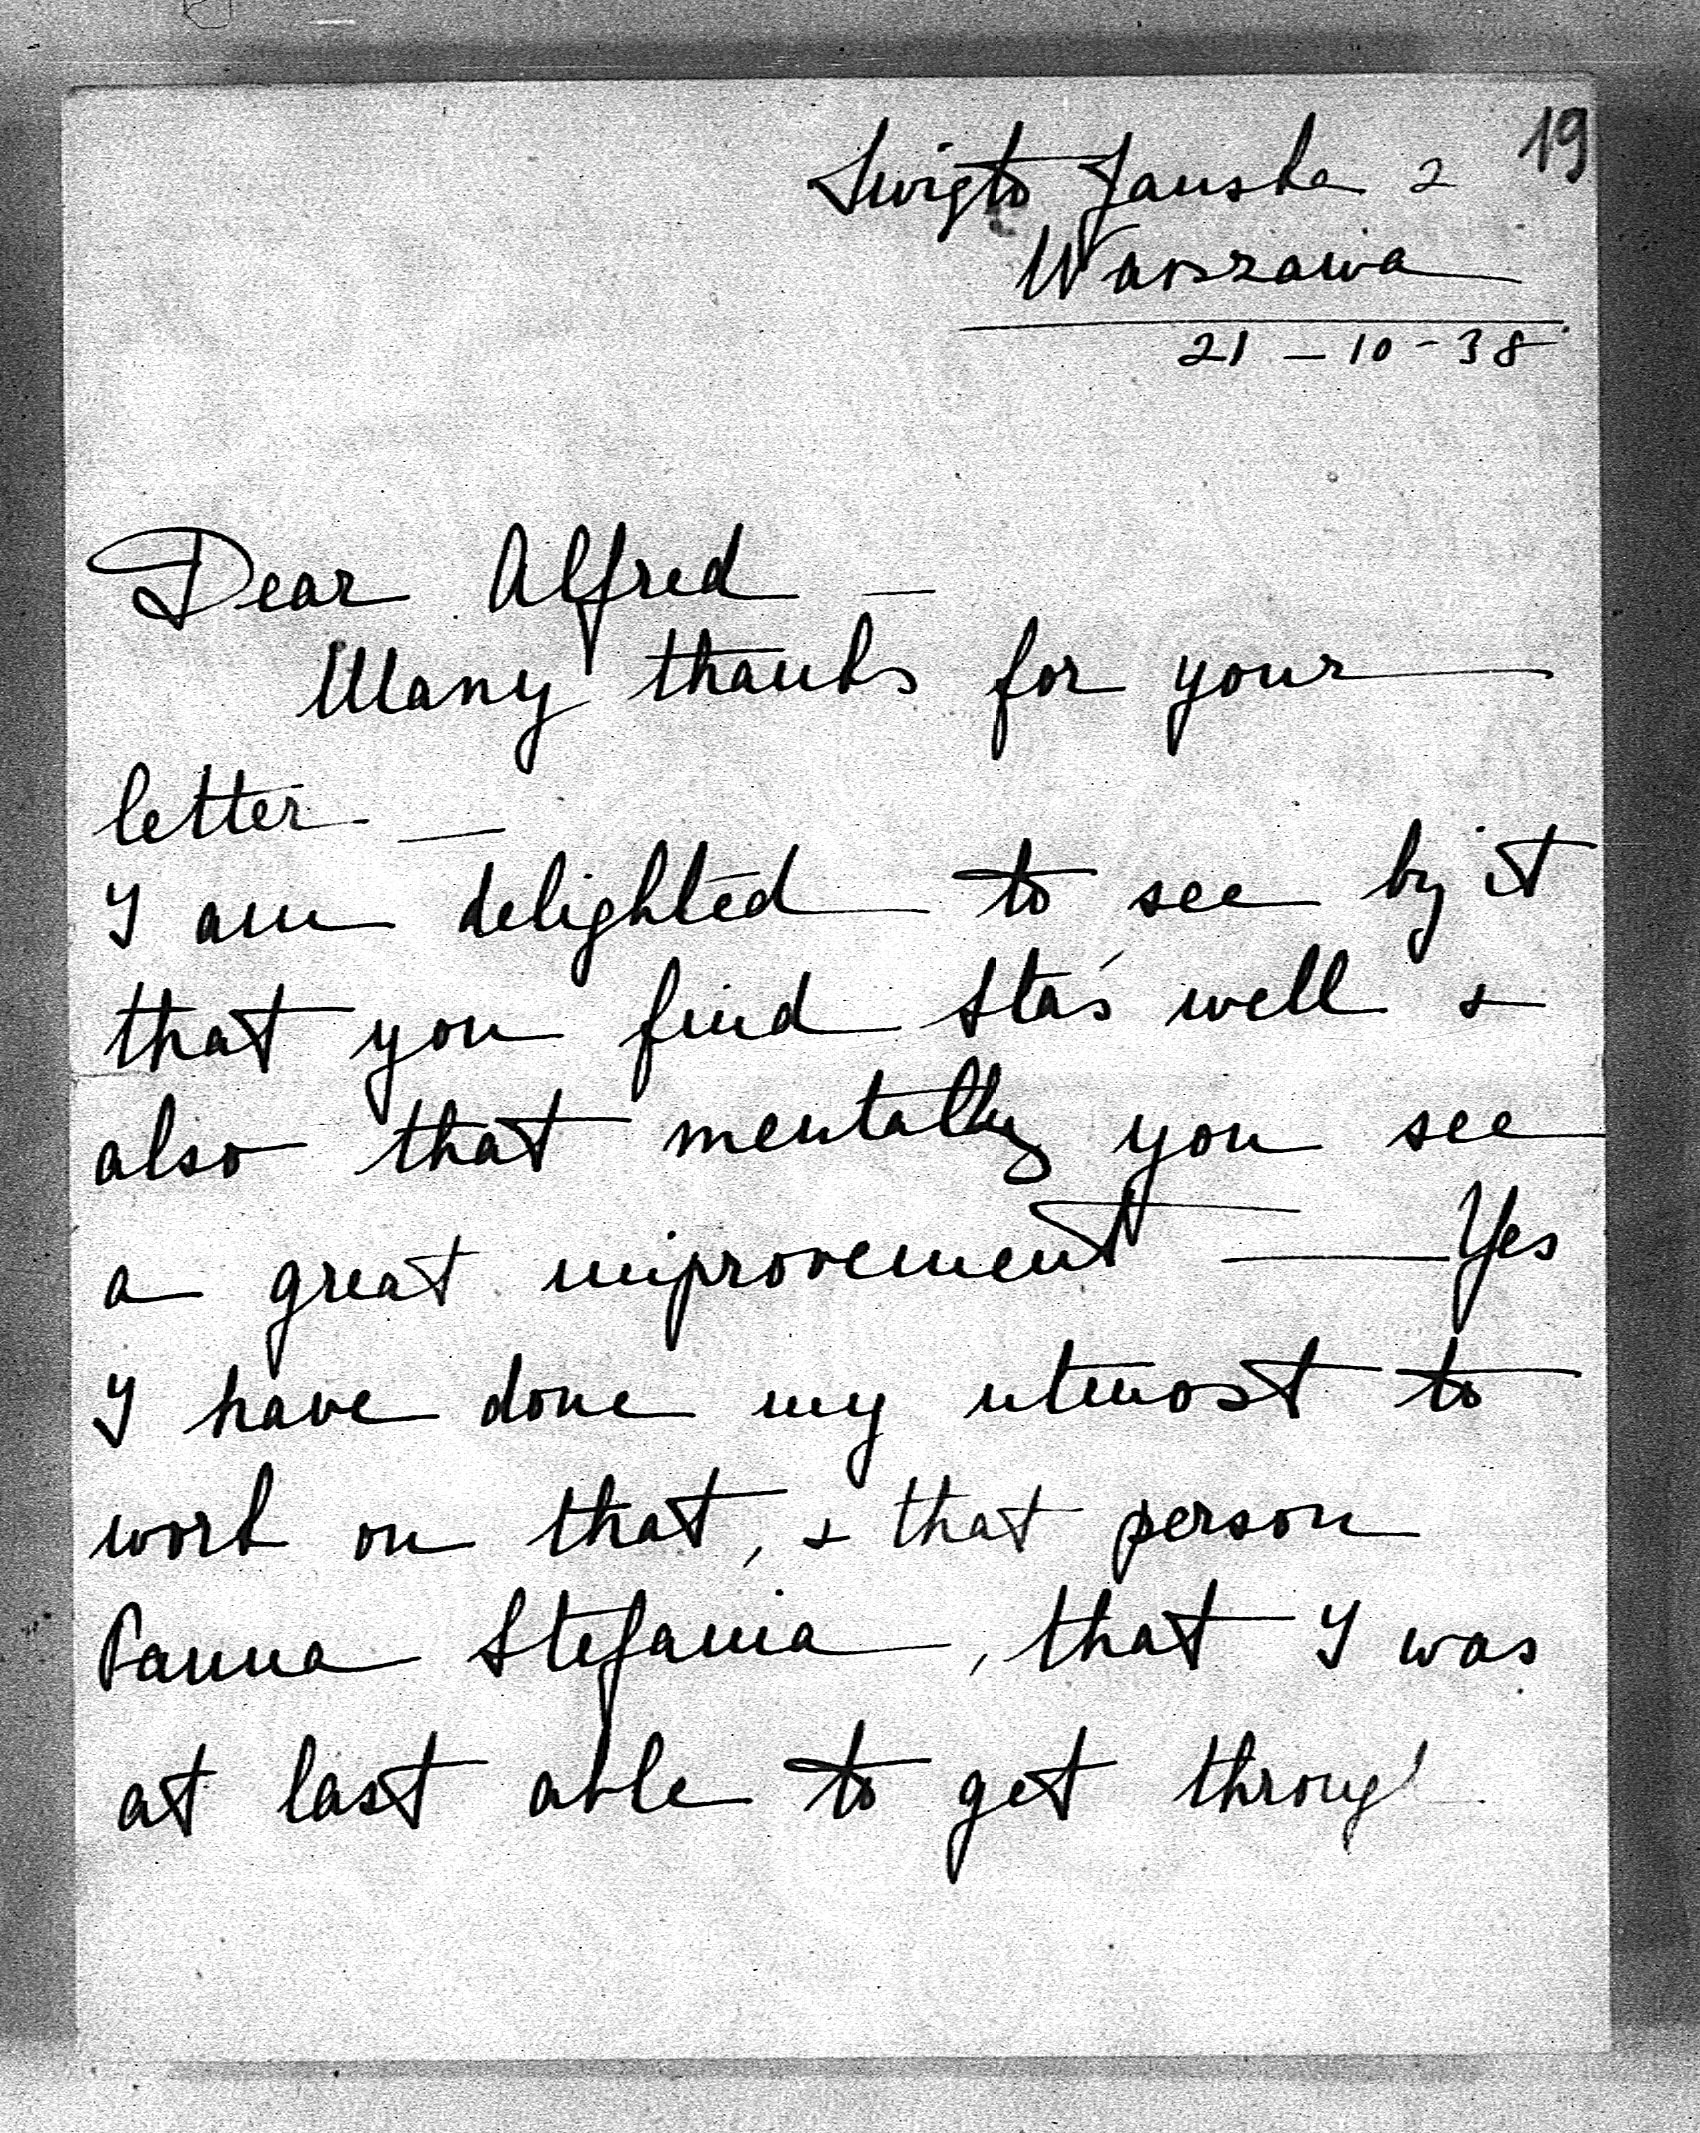 19
Swięto Janska 2
Warszawa
21 - 10 - 38
Dear Alfred —
Many thanks for your
letter —
I am delighted to see by it
that you find Staś well &
also that mentally you see
a great improvement — Yes
I have done my utmost to
work on that, & that person
Panna Stefania, that I was
at last able to get through